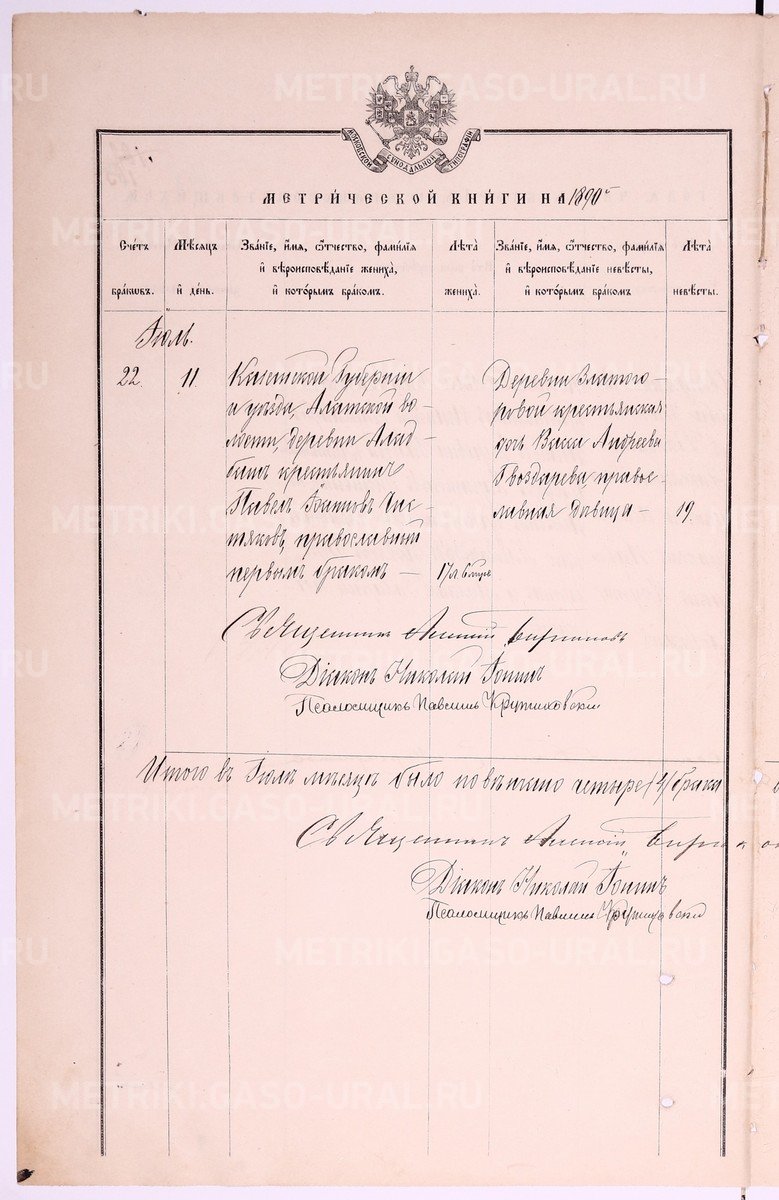 МОСКОВСКОЙ СѴНОДАЛЬНОЙ ТИПОГРАФІИ
МЕТРИ́ЧЕСКОЙ КНИ́ГИ НА 1890 г.
Сче́тъ бра́кѡвъ.
Мѣ́сяцъ и҆ де́нь.
Зва́нїе, и҆́мѧ, ѻ҆́тчество, фами́лїѧ и҆ вѣроисповѣ́данїе жениха̀, и҆ кото́рымъ бра́комъ.
Лѣта̀ жениха̀.
Зва́нїе, и҆́мѧ, ѻ҆́тчество, фами́лїѧ и҆ вѣроисповѣ́данїе невѣ́сты, и҆ кото́рымъ бра́комъ
Лѣта̀ невѣ́сты.
Іюль.
22.
11.
Казанской Губерніи
и уѣзда, Алатской во-
лости, деревни
крестьянинъ
Павелъ Чис-
тяковъ, православный
первымъ бракомъ —
17 л. 6 мѣс.
Деревни Златого-
ровой крестьянская
дочь Васса Андреева
Гвоздарева, правос-
лавная дѣвица —
19.
Священникъ
Діаконъ Николай Іонинъ
Псаломщикъ Павлинъ Крутиховскій
Итого въ Іюлѣ мѣсяцѣ было повѣнчано четыре (4) брака
Священникъ
Діаконъ Николай Іонинъ
Псаломщикъ Павлинъ Крутиховскій
METRIKI.GASO-URAL.RU